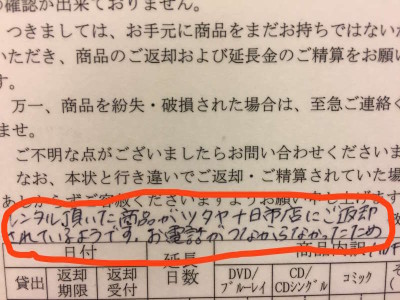 の確認が出来ておりません。
つきましては、お手元に商品をまだお持ちではないか
いただき、商品のご返却および延長金のご精算をお願い
す。
万一、商品を紛失・破損された場合は、至急ご連絡く
ませ。
ご不明な点がございましたらお問い合わせくださいま
なお、本状と行き違いでご返却・ご精算されていた場
あしからずご容赦くださいますようお願い申し上げます
レンタル頂いた商品がツタヤ十日市店にご返却
されているようです。お電話がつながらなかったため
日付
延長
日数
商品内訳
貸出
返却
期限
返却
受付
DVD/
ブルーレイ
CD/
CDシングル
コミック